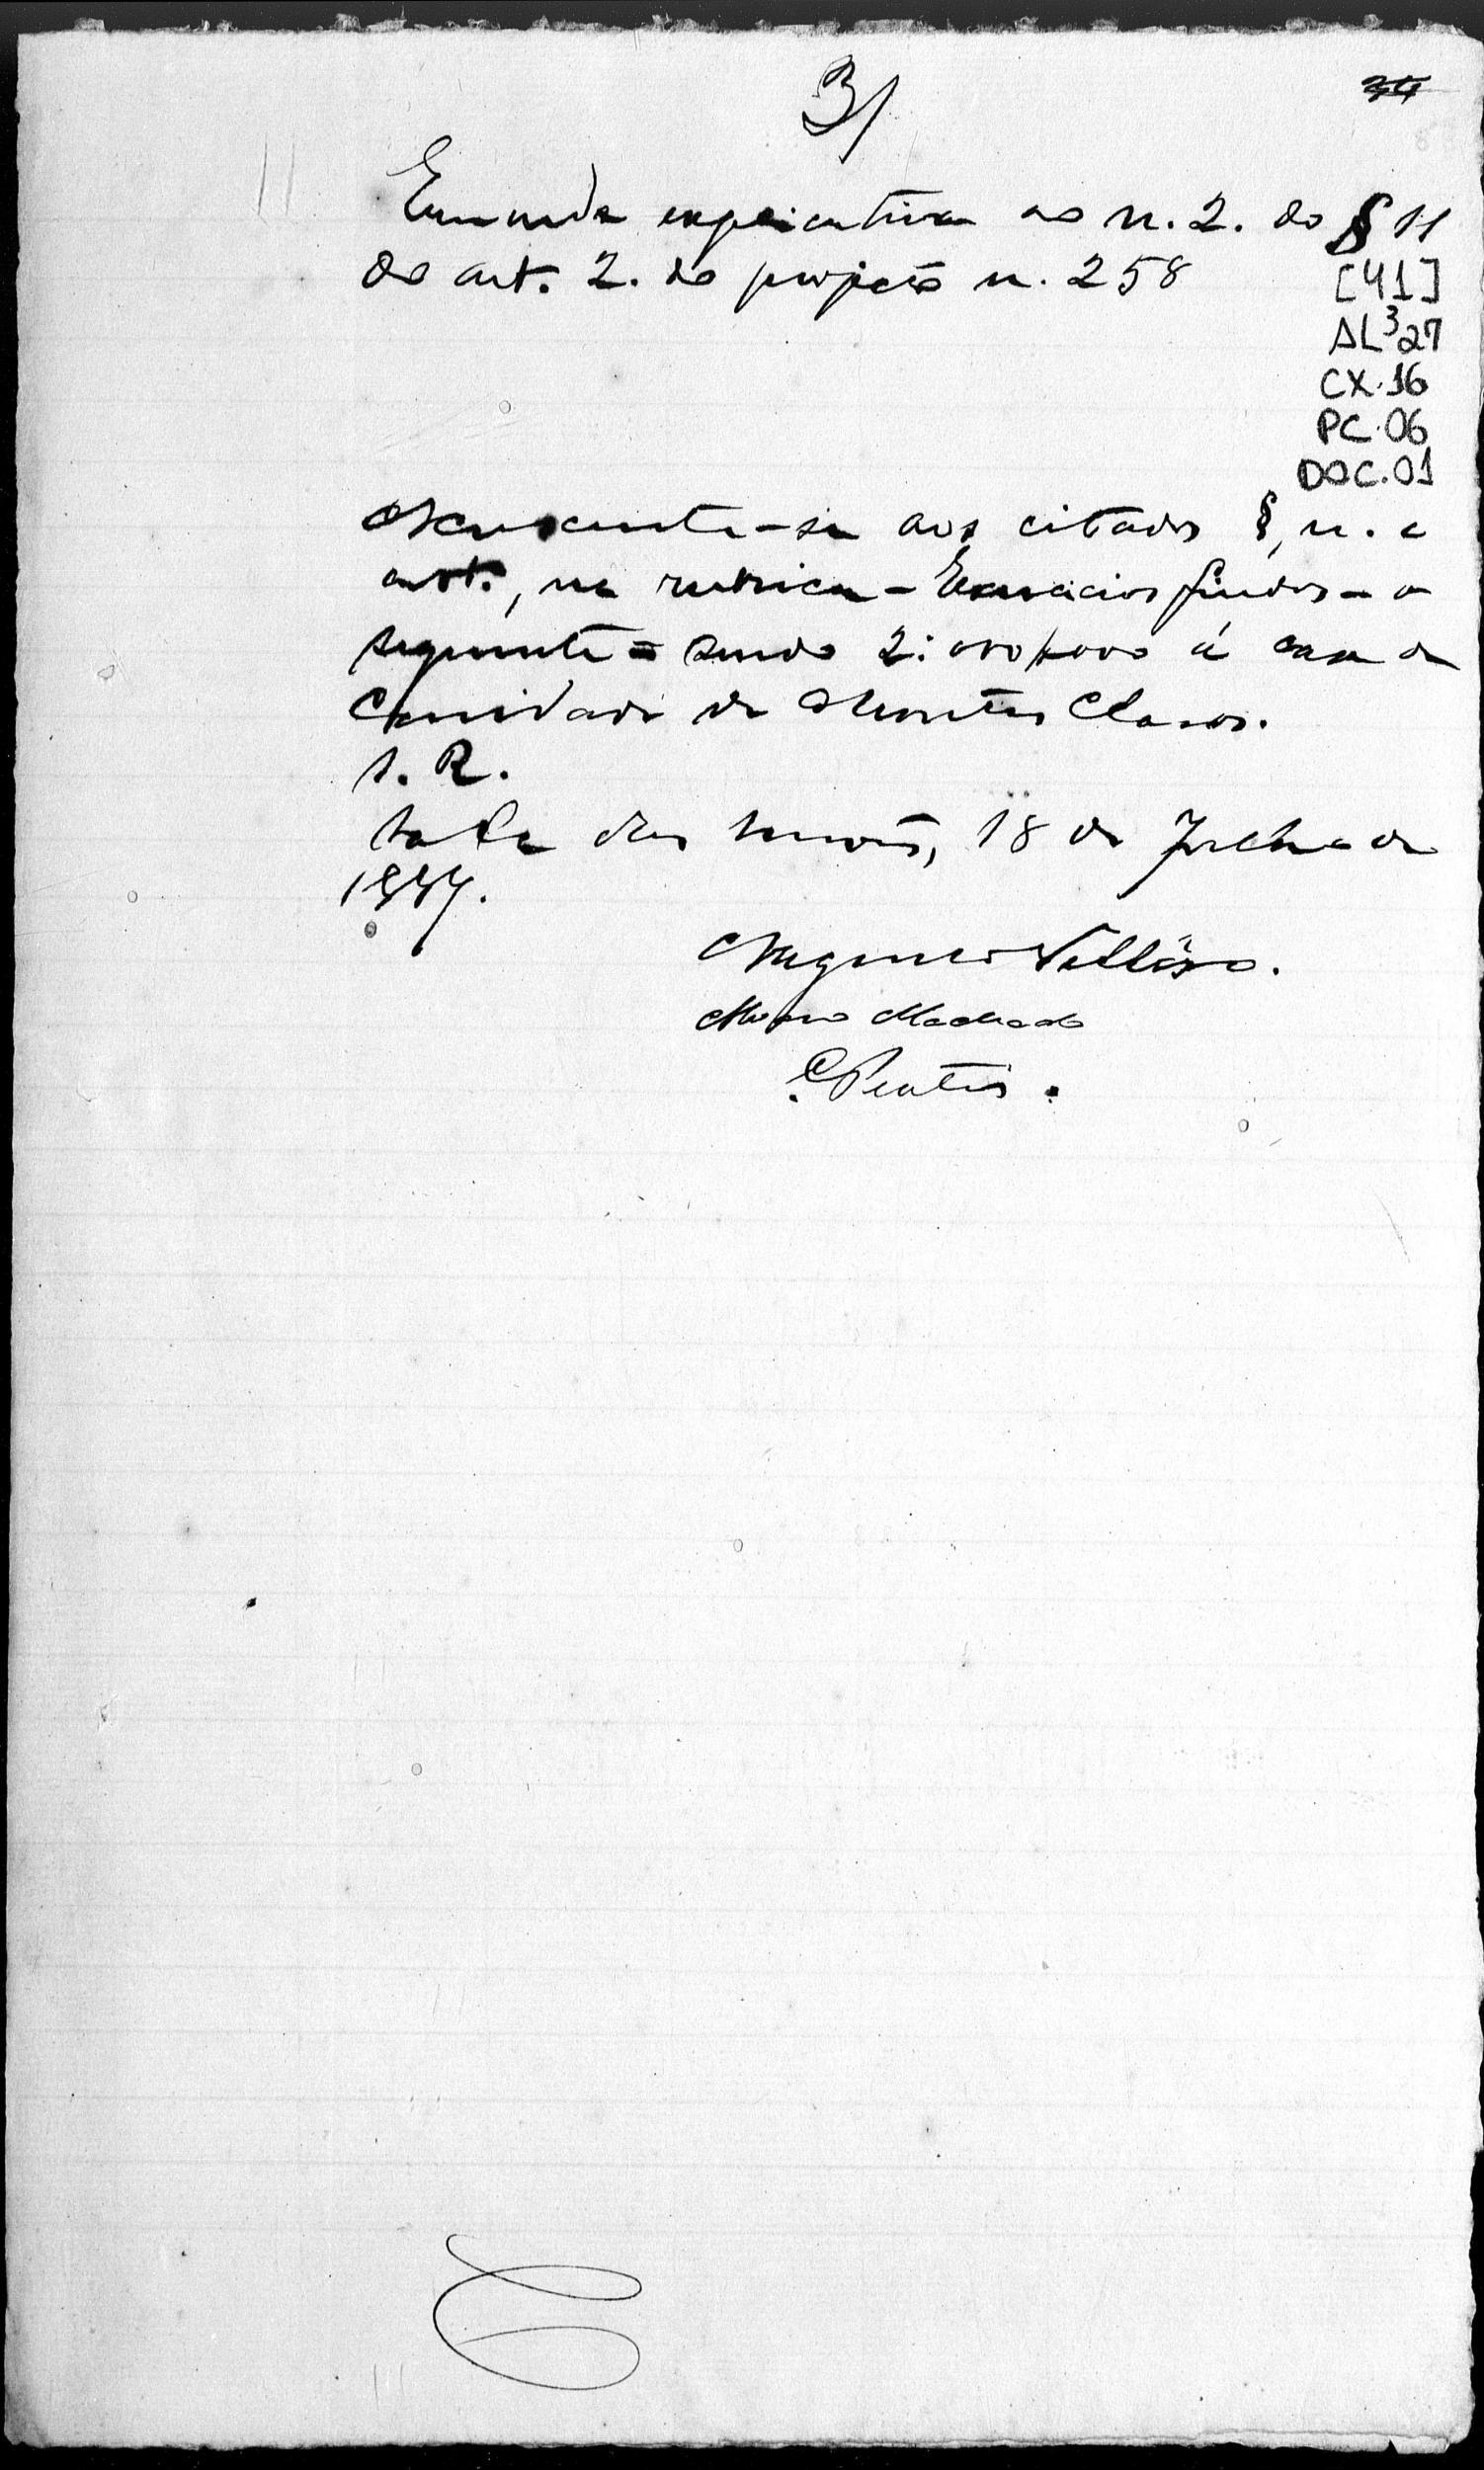 3/
34
Emenda explicativa ao n. 2. do § 11
do art. 2. do projecto n. 258
[41]
AL³27
CX.16
PC.06
DOC.01
Accrescente-se aos citados §, n. e
art., na rubrica - Exercicios findos - o
seguinte = sendo 2:000$000 á casa de
Caridade de Montes Claros.
S. R.
Sala das sessões, 18 de Julho de
1887.
Nogueira Vellôso.
Machado